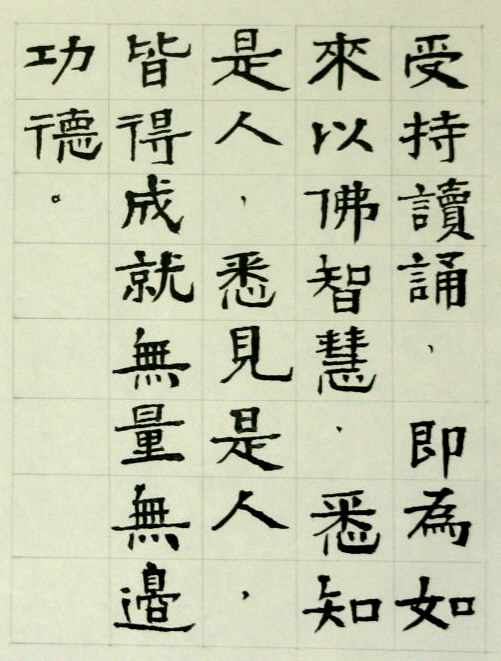 受持讀誦、即為如
來以佛智慧、悉知
是人、悉見是人、
皆得成就無量無邊
功德。